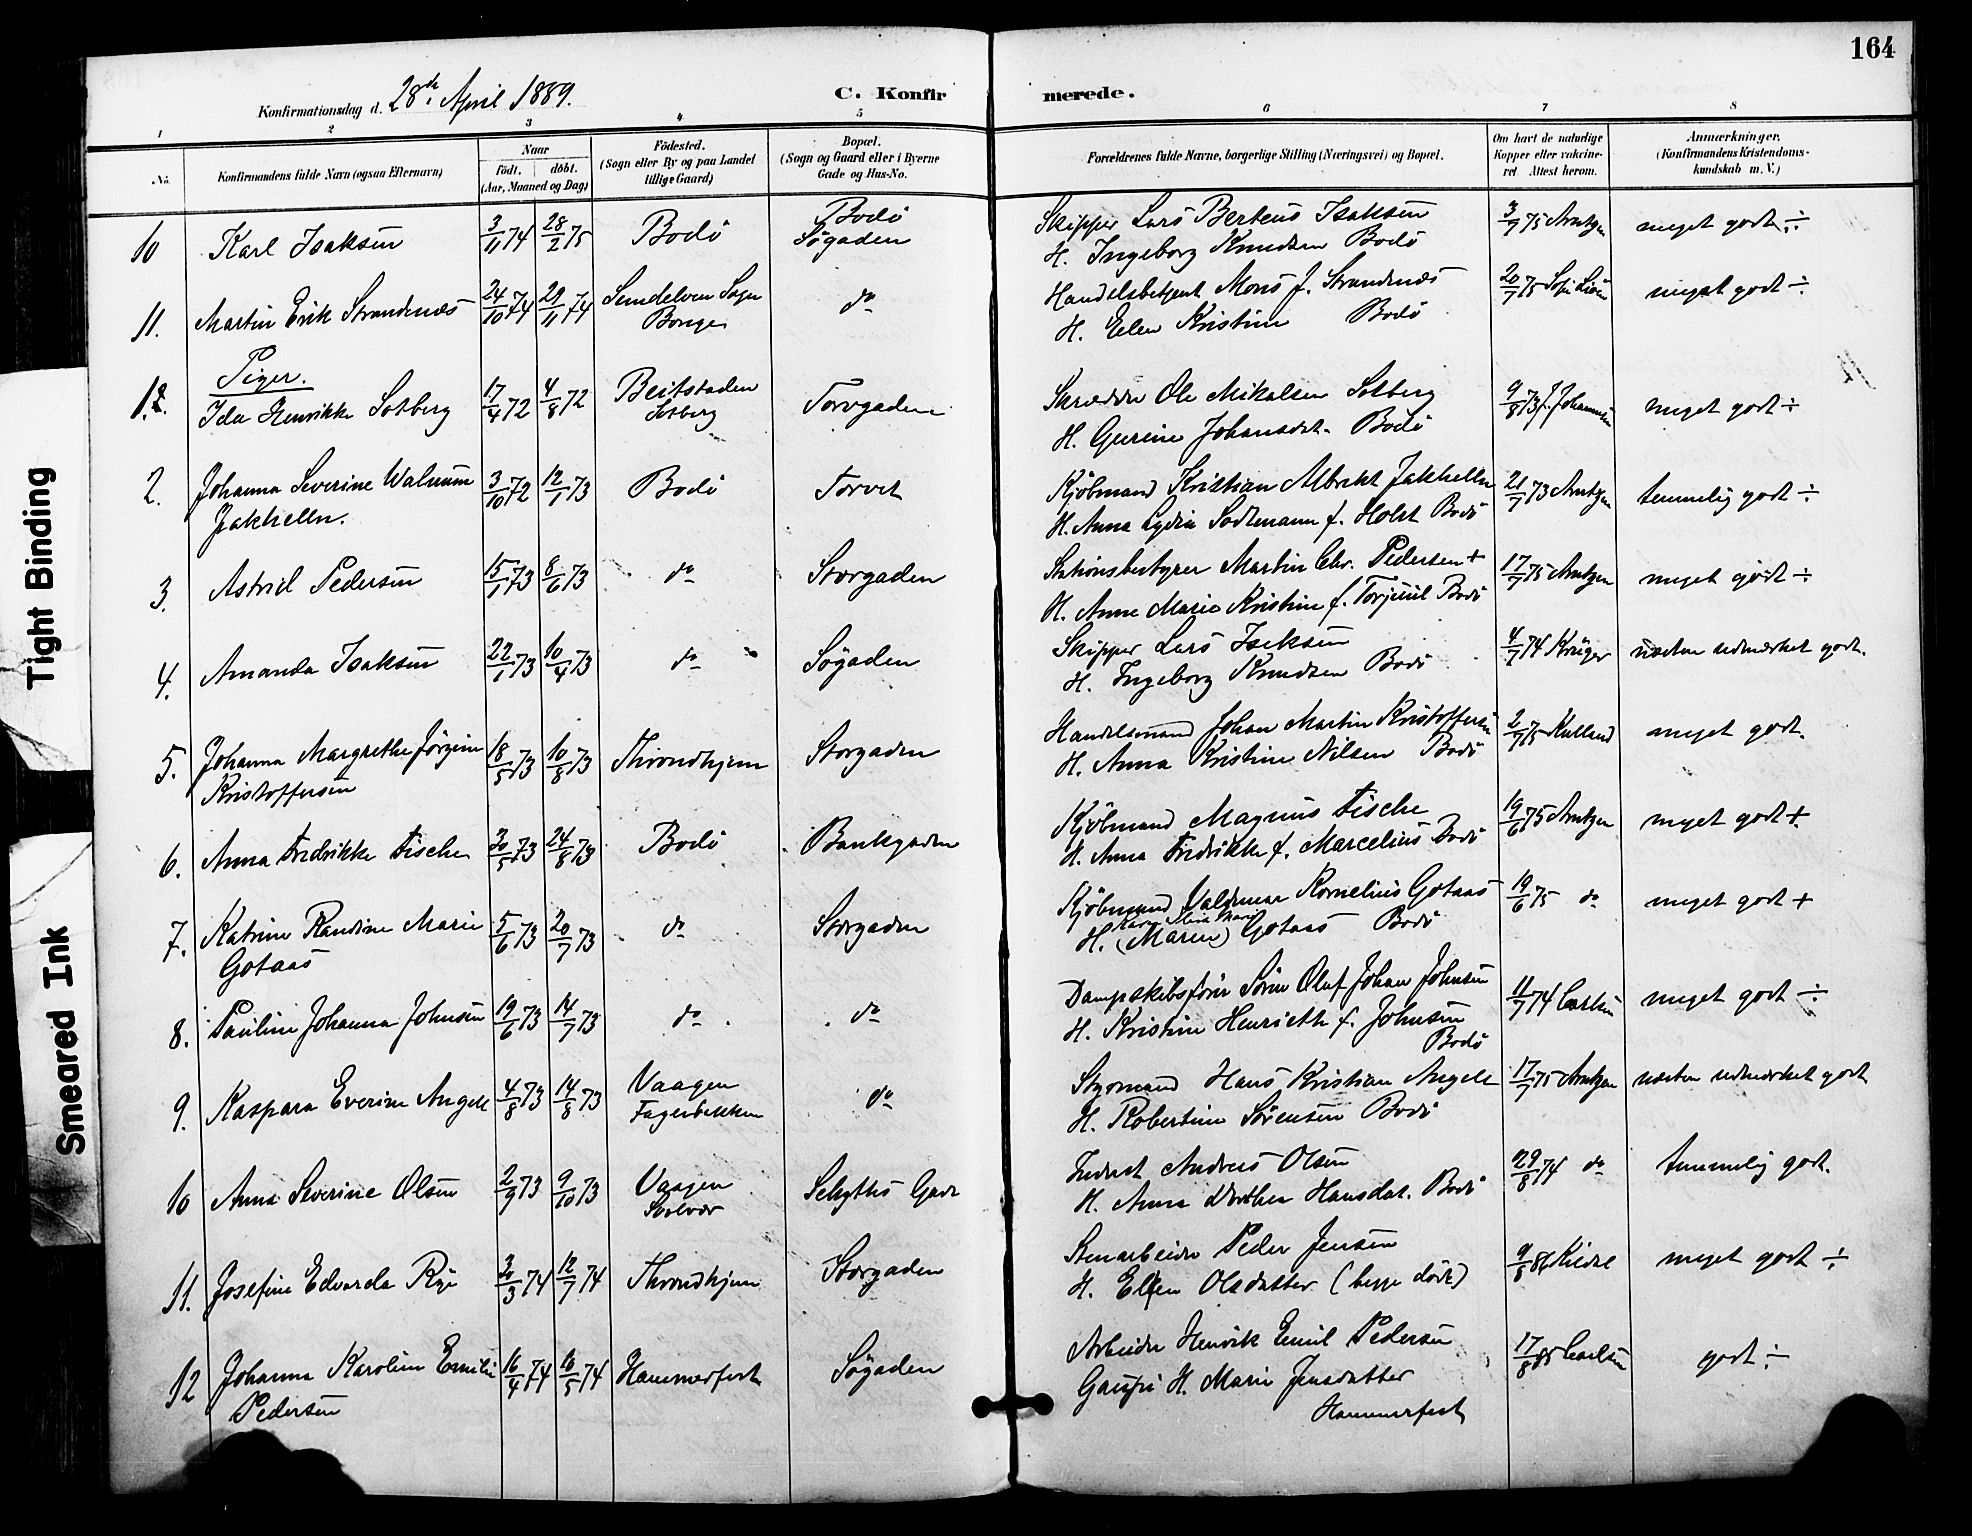 164
Konfirmationsdag d. 28de April 1889.
C. Konfirmerede.
1 2 3 4 5 6 7 8
No.
Konfirmandens fulde Navn (ogsaa Efternavn)
Naar
födt. döbt.
(Aar, Maaned og Dag)
Födested.
(Sogn eller By og paa Landet
tillige Gaard)
Bopæl.
(Sogn og Gaard eller i Byerne
Gade og Hus-No.
Forældrenes fulde Navne, borgerlige Stilling (Næringsvei) og Bopæl.
Om havt de naturlige
Kopper eller vakcine-
ret Attest herom.
Anmærkninger.
(Konfirmandens Kristendoms-
kundskab m. V.)
10 Karl Isaksen 3/11 74 28/2 75 Bodö Bodö
Søgaden
Skipper Lars Berteus Isaksen 3/7 75 Arntzen meget godt ÷
H. Ingeborg Knudsen Bodö
11. Martin Erik Strandnæs 24/10 74 29/11 74 Sundelven Sogn do
Handelsbetjent Mons J. Strandnæs 20/7 75 meget godt ÷
H. Elen Kristine Bodö
Piger.
1. Ida Henrikke Solberg 17/4 72 4/8 72 Beitstaden Torvgaden
Solberg
Skrædder Ole Mikalsen Solberg 9/8 73 J. Johannesen meget godt ÷
H. Gurine Johansdt. Bodö
2. Johanna Severine Walnum 3/10 72 12/1 73 Bodö Torvet
Jakhelln.
Kjöbmand Kristian Albrekt Jakhelln 21/7 73 Arntzen temmelig godt ÷
H. Anna Lydia Sodemann f. Holst Bodö
3. Astrid Pedersen 15/1 73 8/6 73 do Storgaden
Stationsbestyrer Martin Chr. Pedersen + 17/7 75 Arntzen meget godt ÷
H. Anne Marie Kristine f. Torjuul Bodö
4. Amanda Isaksen 22/1 73 10/4 73 do Søgaden
Skipper Lars Isaksen 4/7 74 Krüger næsten udmærket godt.
H. Ingeborg Knudsen Bodö
5. Johanna Margrethe Jörgine 18/5 73 10/8 73 Throndhjem Storgaden
Kristoffersen
Handelsmand Johan Martin Kristoffersen 2/7 75 Kulland meget godt.
H. Anna Kristine Nilsen Bodö
6. Anna Fredrikke Fische 30/5 73 24/8 73 Bodö Bankgaden
Kjöbmand Magnus Fische 19/6 75 Arntzen meget godt +
H. Anna Fredrikke f. Marcelius Bodö
7. Katrine Randine Marie 5/6 73 20/7 73 do Storgaden
Gotaas
Kjöbmand Valdemar Kornelius Gotaas 19/6 75 do meget godt +
H. (Maren) Gotaas Bodö
8. Pauline Johanna Johnsen 19/6 73 14/7 73 do do
Dampskibsförer Sören Oluf Johan Johnsen 11/7 74 Carlsen meget godt ÷
H. Kristine Henriette f. Johnsen
Bodö
9. Kaspara Everine Angell 4/8 73 14/8 73 Vaagen do
Fagerbakken
Styrmand Hans Kristian Angell 17/7 75 Arntzen næsten udmærket godt
H. Robertine Sørensen Bodö
10 Anna Severine Olsen 2/9 73 9/10 73 Vaagen Schyttes Gade
Svolvær
Andreas Olsen 29/8 74 do temmelig godt.
H. Anna Dorthea Hansdat. Bodö
11. Josefine Edvarda Rye 30/3 74 12/7 74 Throndhjem Storgaden
Stenarbeider Peder Jensen meget godt ÷
H. Ellen Olsdatter (begge døde)
12 Johanna Karoline Emilie 16/4 74 10/5 74 Hammerfest Søgaden
Pedersen
Arbeider Henrik Emil Pedersen 17/8 85 Carlsen godt ÷
H. Marie Jensdatter
Hammerfest
Tight Binding
Smeared Ink